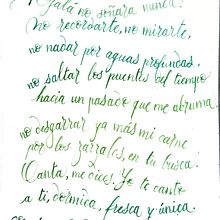 ¡Ojalá no soñara nunca!
No recordarte, no mirarte,
no nadar por aguas profundas,
no saltar los puentes del tiempo
hacia un pasado que me abruma,
no desgarrar ya más mi carne
por los zarzales, en tu busca.
Canta, me dices. Yo te canto
a ti, dormida, fresca y única